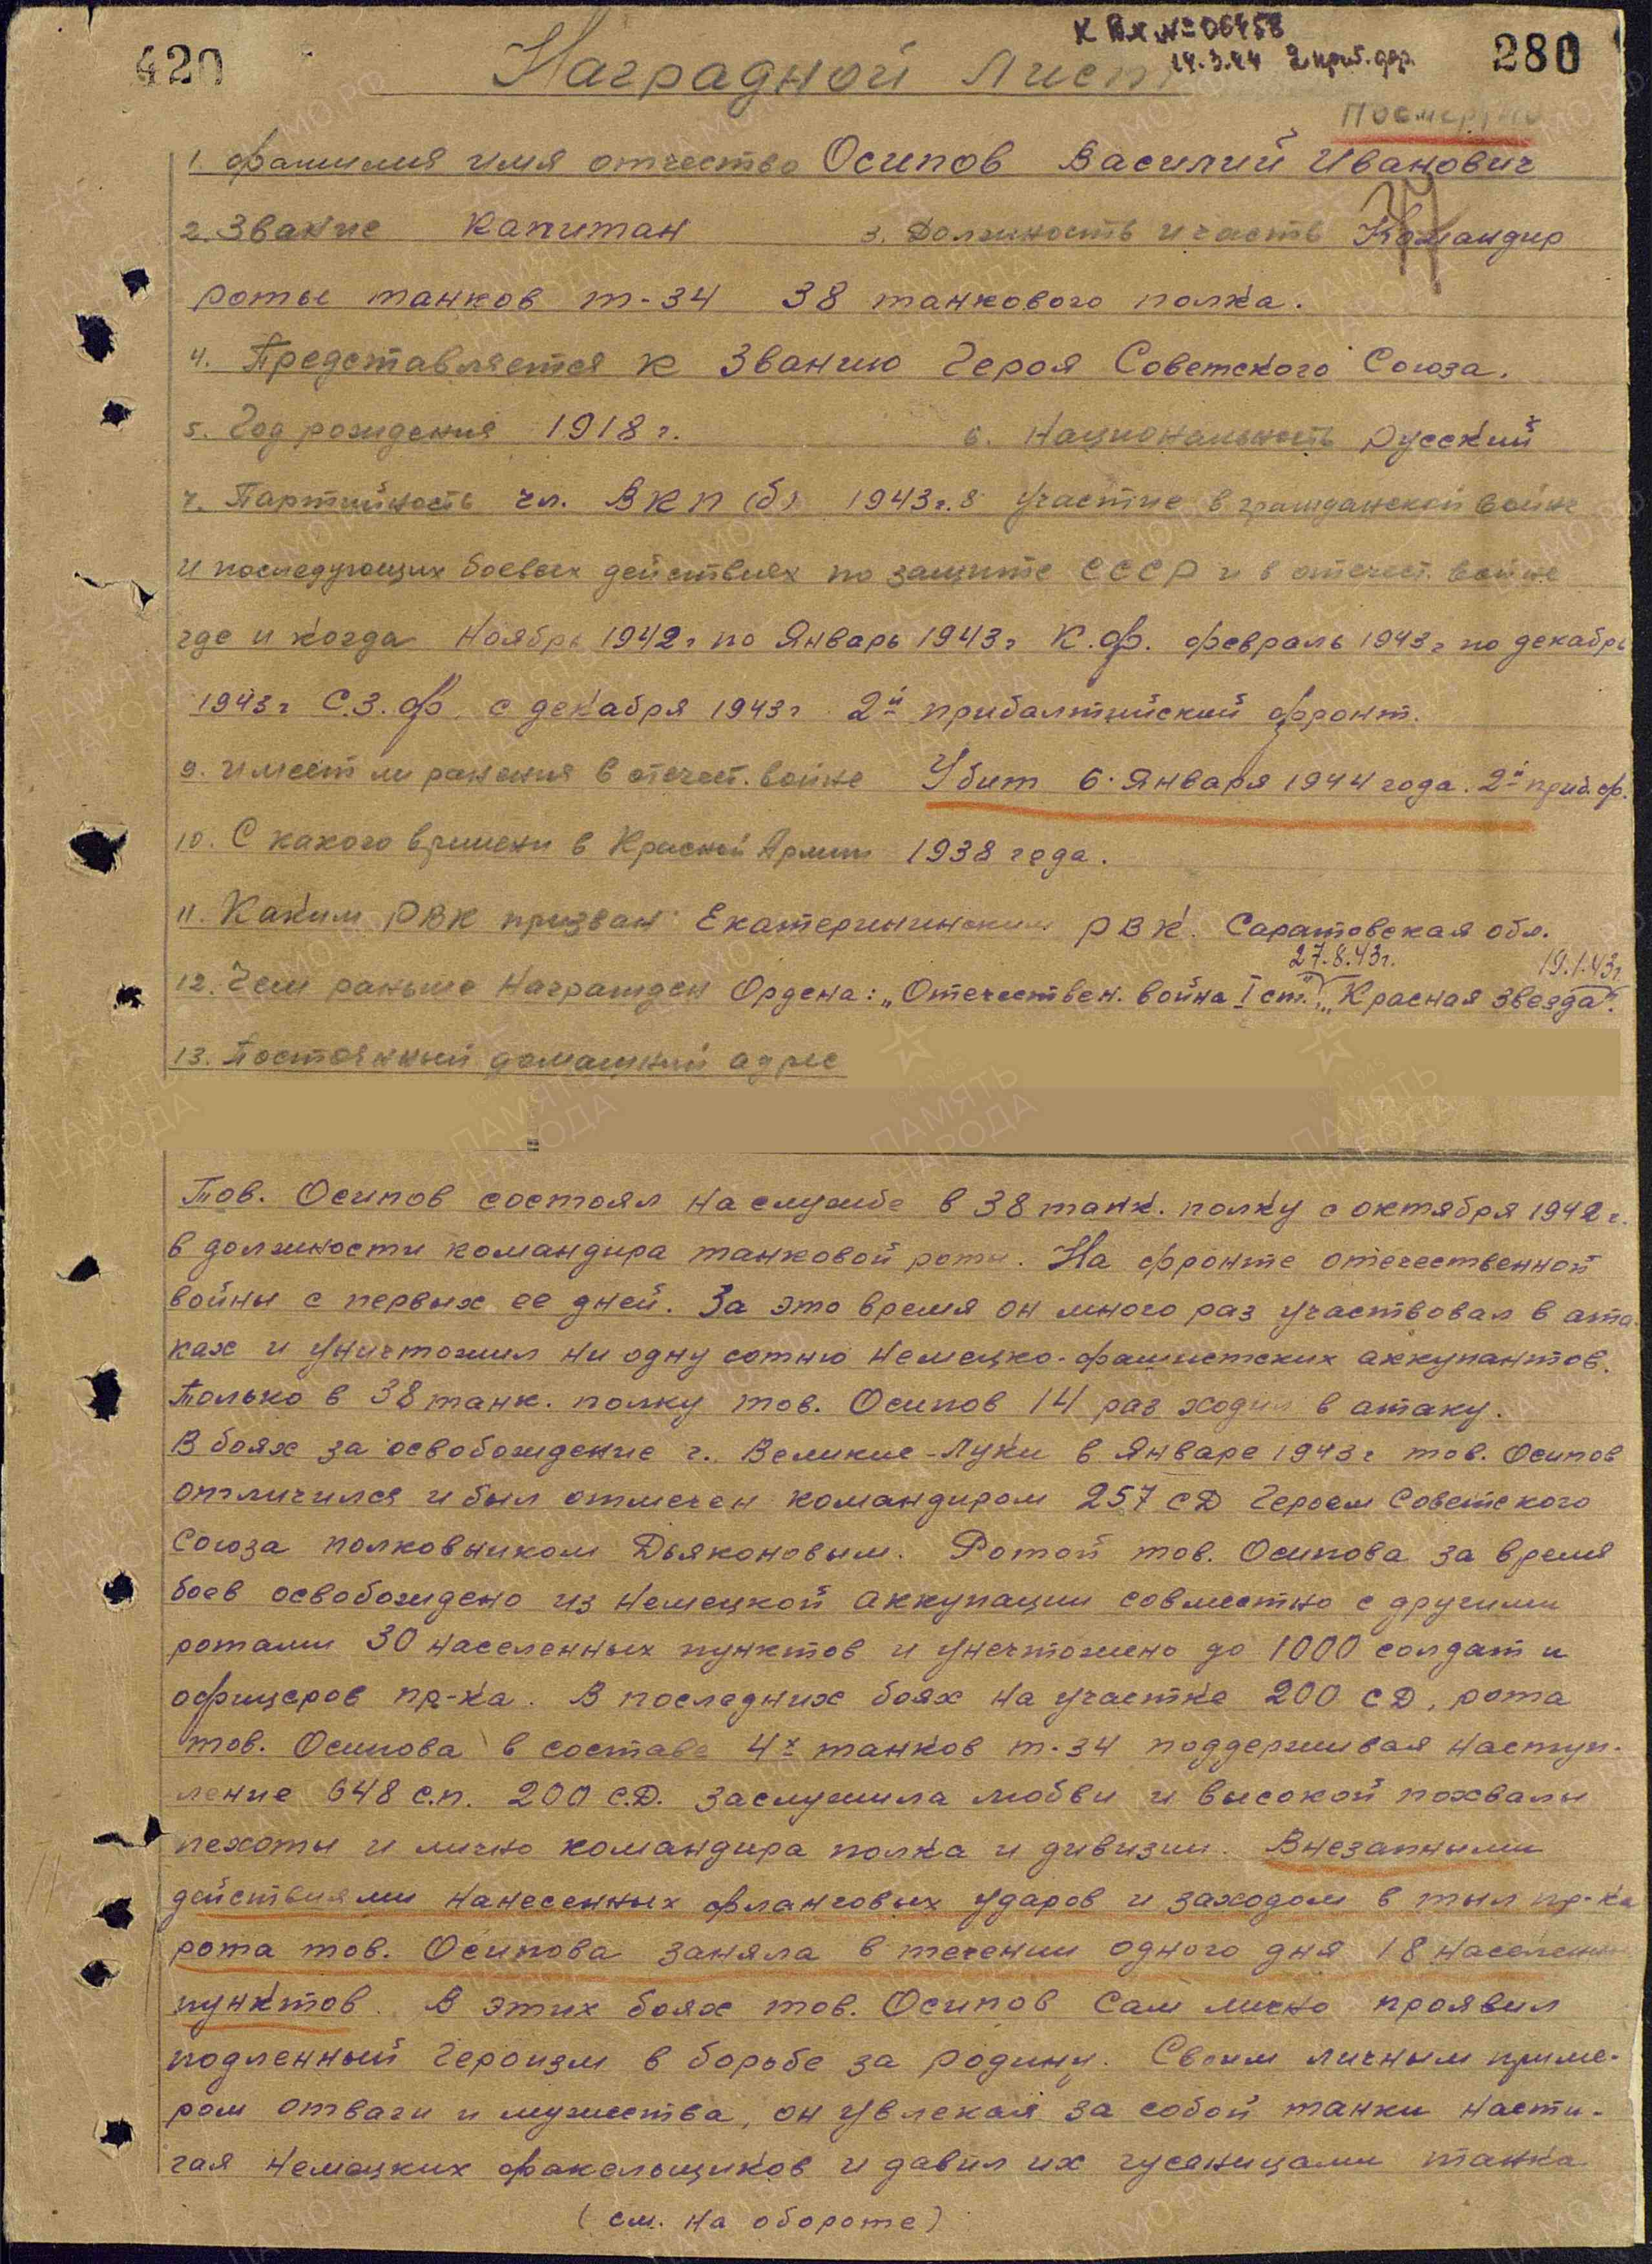 К Вх. № 06458
420
Наградной лист
14.3.44 2 приб. фр.
280
Посмертно
1. Фамилия имя отчество Осипов Василий Иванович
2. Звание капитан 3. Должность и часть Командир
роты танков т-34 38 танкового полка.
4. Представляется к Званию Героя Советского Союза.
5. Год рождения 1918 г. 6. Национальность Русский
7. Партийность чл. ВКП(б) 1943г. 8 Участие в гражданской войне
и последующих боевых действиях по защите СССР и в отечест. войне
где и когда Ноябрь 1942г по Январь 1943г К.Ф. февраль 1943г по декабрь
1943г С.З.Ф. с декабря 1943г 2й прибалтийский фронт.
9. Имеет ли ранения в отечест. войне Убит 6 Января 1944 года. 2й приб. ф.
10. С какого времени в Красной Армии 1938 года.
11. Каким РВК призван Екатерининским РВК. Саратовская обл.
27.8.43г. 19.1.43г.
12. Чем раньше Награжден Ордена: „Отечествен. война I ст." „Красная звезда".
13. Постоянный домашний адрес
Тов. Осипов состоял на службе в 38 танк. полку с октября 1942 г.
в должности командира танковой роты. На фронте отечественной
войны с первых ее дней. За это время он много раз участвовал в ата-
ках и уничтожил ни одну сотню немецко-фашистских аккупантов.
Только в 38 танк. полку тов. Осипов 14 раз ходил в атаку.
В боях за освобождение г. Великие-Луки в Январе 1943г тов. Осипов
отличился и был отмечен командиром 257 СД Героем Советского
Союза полковником Дьяконовым. Ротой тов. Осипова за время
боев освобождено из немецкой аккупации совместно с другими
ротами 30 населенных пунктов и унечтожено до 1000 солдат и
офицеров пр-ка. В последних боях на участке 200 СД, рота
тов. Осипова в составе 4х танков т-34 поддерживая наступ-
ление 648 с.п. 200 С.Д. заслужила любви и высокой похвалы
пехоты и лично командира полка и дивизии. Внезапными
действиями нанесенных фланговых ударов и заходом в тыл пр-ка
рота тов. Осипова заняла в течении одного дня 18 населенных
пунктов. В этих боях тов. Осипов сам лично проявил
подленный героизм в борьбе за родину. Своим личным приме-
ром отваги и мужества, он увлекая за собой танки насти-
гая немецких факельщиков и давил их гусеницами танка
(см. на обороте)